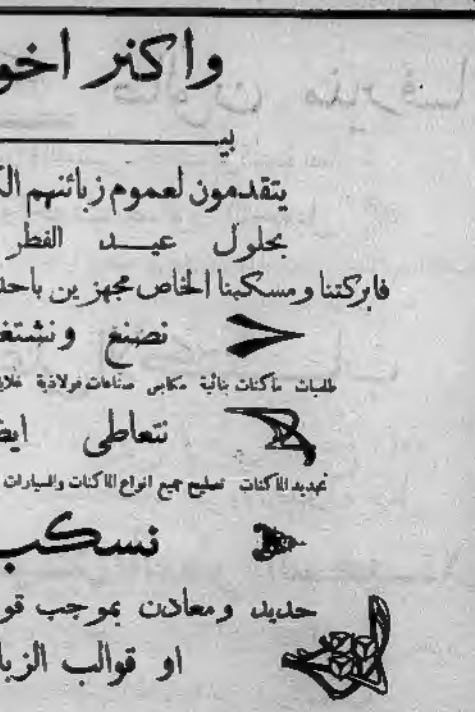 واكنر اخو
بيـ
يتقدمون لعموم زبائنهم الك
بحلول عيــد الفطر
فابركتنا ومسكبنا الخاص مجهزين باحد
نصنع ونشتغ
طلبات ماكنات بنائية مكابس صناعات فولاذية غلاي
نتعاطى ايض
تجديد الماكنات تصليح جميع انواع الماكنات والسيارات
نسكب
حديد ومعادن بموجب قو
او قوالب الزبا